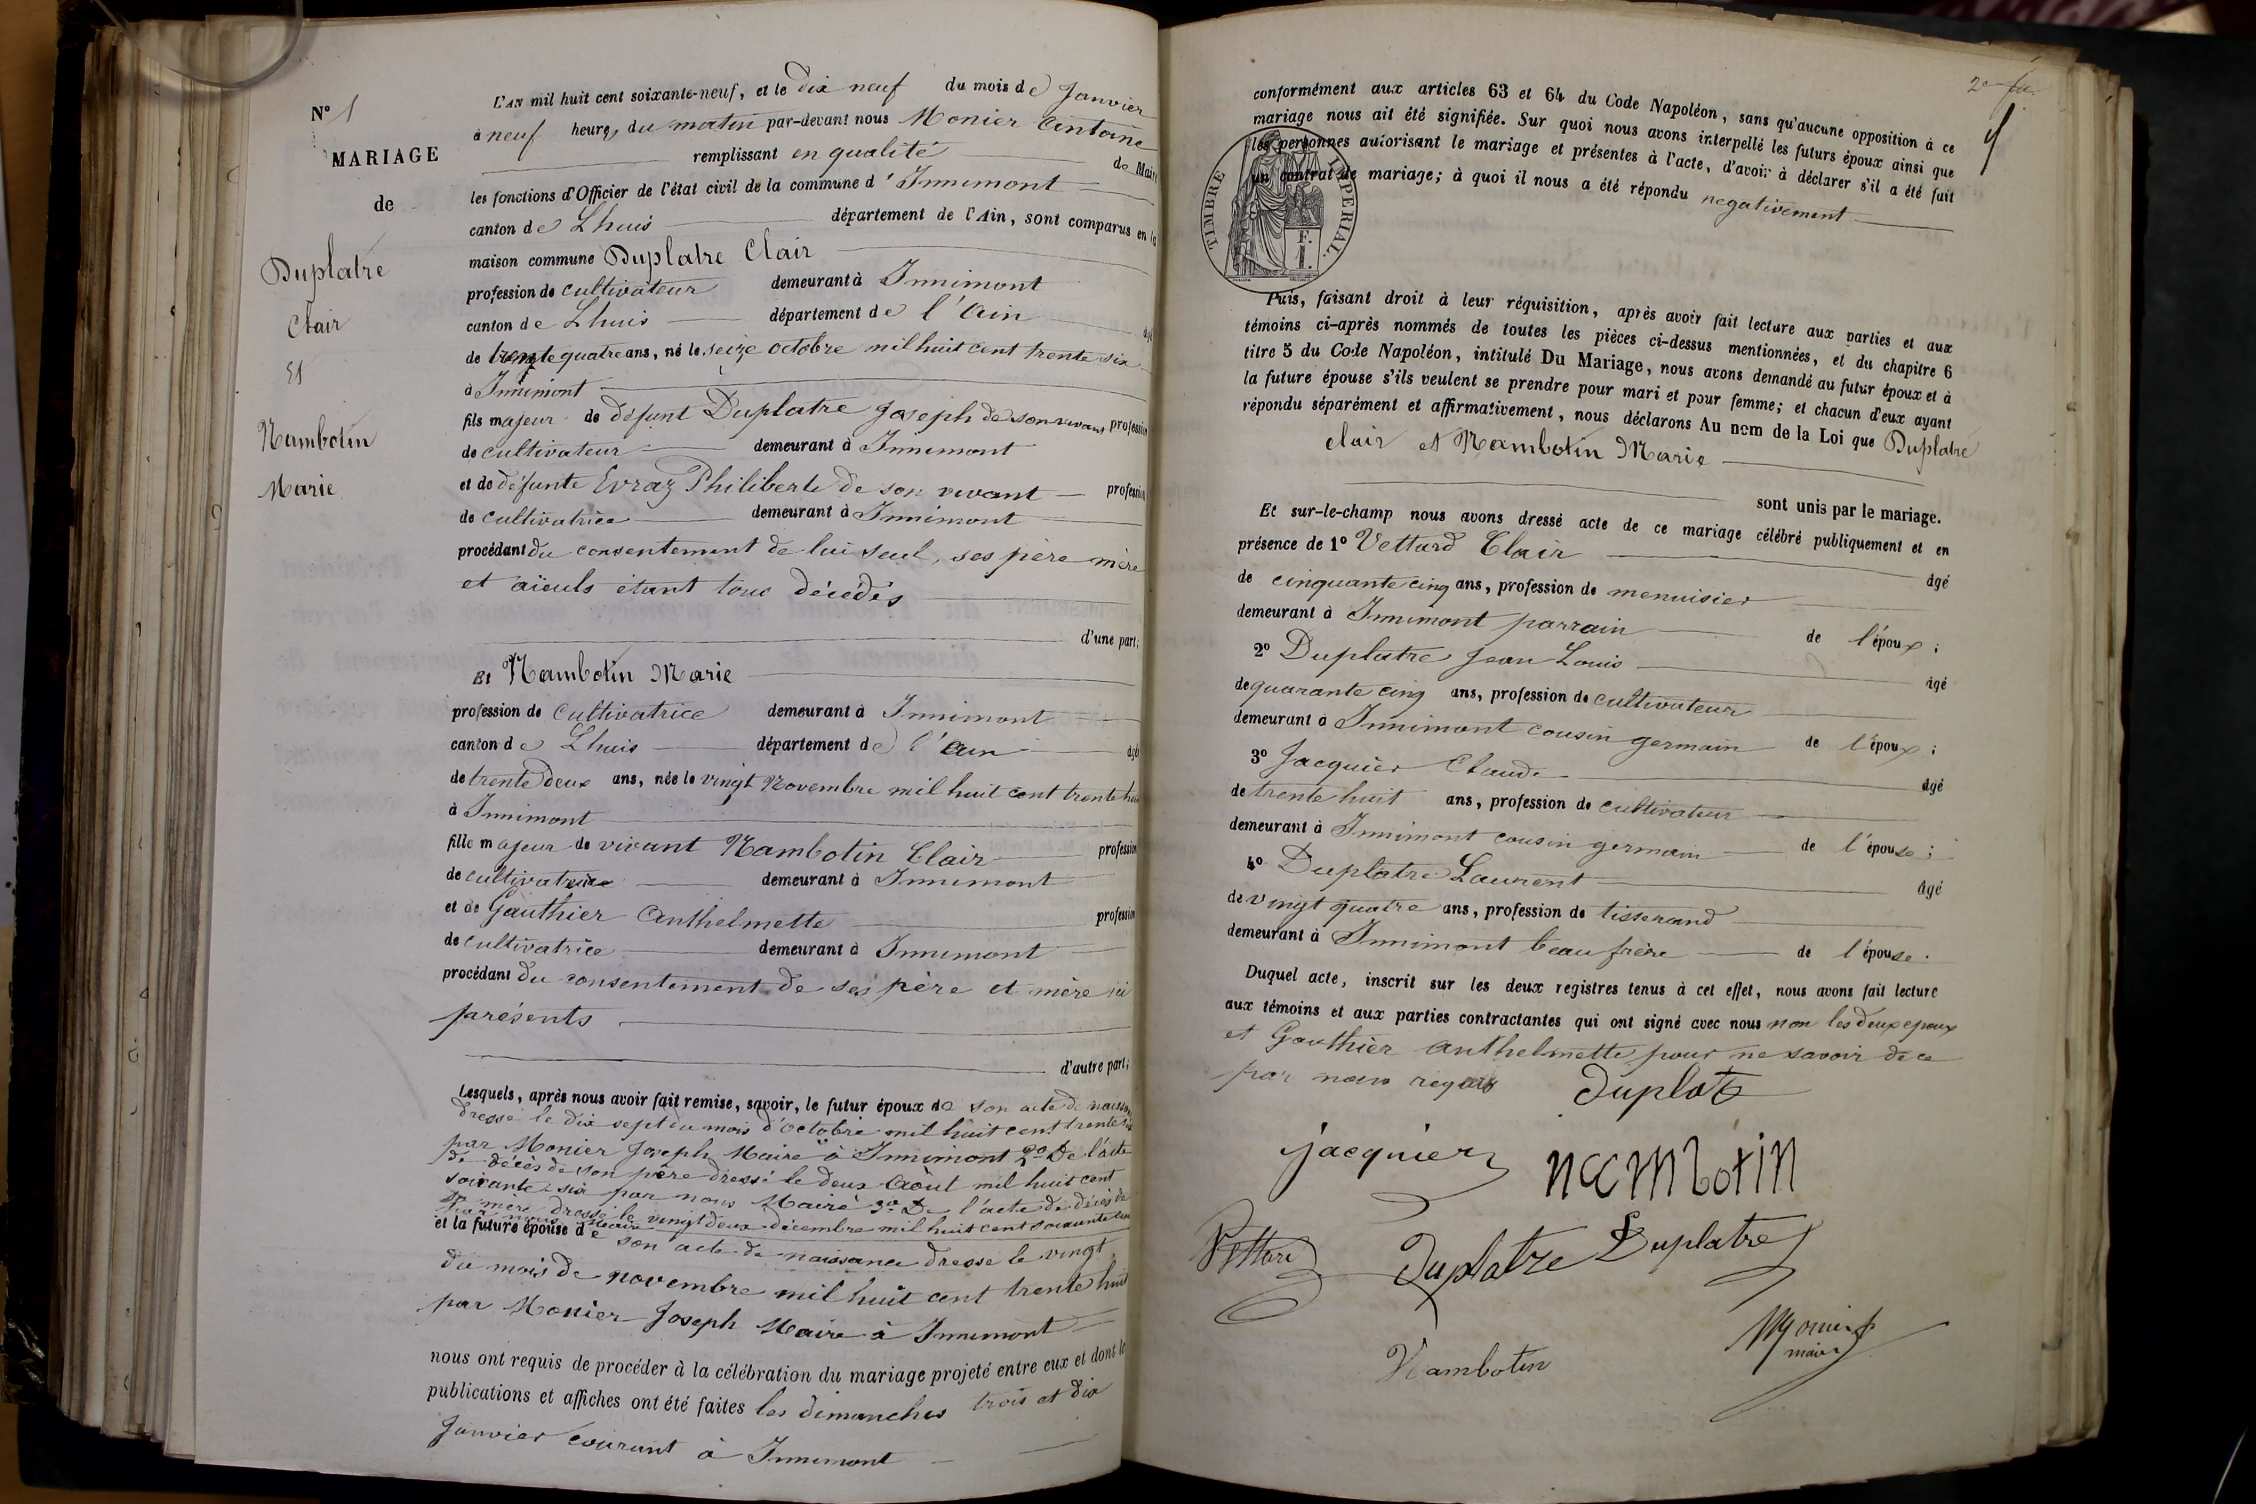 N° 1
MARIAGE
de
Duplatre
Clair
Et
Nambotin
Marie
L'AN mil huit cent soixante-neuf, et le dix neuf du mois de Janvier
à neuf heures du matin par-devant nous Monier Antoine
remplissant en qualité de Maire
les fonctions d'Officier de l'état civil de la commune d'Innimont
canton de Lhuis département de l'Ain, sont comparus en la
maison commune Duplatre Clair
profession de cultivateur demeurant à Innimont
canton de Lhuis département de l'Ain âgé
de trente quatre ans, né le seize octobre mil huit cent trente six
à Innimont
fils majeur de défunt Duplatre Joseph de son vivant profession
de cultivateur demeurant à Innimont
et de défunte Evraz Philiberte de son vivant profession
de cultivatrice demeurant à Innimont
procédant du consentement de lui seul, ses père mère
et aïeuls étant tous décédés
d'une part;
Et Nambotin Marie
profession de Cultivatrice demeurant à Innimont
canton de Lhuis département de l'Ain âgée
de trente deux ans, née le vingt Novembre mil huit cent trente huit
à Innimont
fille majeur de vivant Nambotin Clair profession
de cultivatrice demeurant à Innimont
et de Gauthier Anthelmette profession
de cultivatrice demeurant à Innimont
procédant du consentement de ses père et mère ici
présents
d'autre part;
Lesquels, après nous avoir fait remise, savoir, le futur époux de son acte de naissance
dressé le dix sept du mois d'Octobre mil huit cent trente six
par Monier Joseph Maire à Innimont 2° De l'acte
de décès de son père dressé le deux Août mil huit cent
soixante six par nous Maire 3° De l'acte de décès de
sa mère dressé le vingt deux décembre mil huit cent soixante
par nous Maire
et la future épouse de son acte de naissance dressé le vingt
du mois de novembre mil huit cent trente huit
par Monier Joseph Maire à Innimont
nous ont requis de procéder à la célébration du mariage projeté entre eux et dont les
publications et affiches ont été faites les dimanches trois et dix
Janvier courant à Innimont
conformément aux articles 63 et 64 du Code Napoléon, sans qu'aucune opposition à ce
mariage nous ait été signifiée. Sur quoi nous avons interpellé les futurs époux ainsi que
les personnes autorisant le mariage et présentes à l'acte, d'avoir à déclarer s'il a été fait
un contrat de mariage; à quoi il nous a été répondu negativement
TIMBRE IMPERIAL
F.
1.
Puis, faisant droit à leur réquisition, après avoir fait lecture aux parties et aux
témoins ci-après nommés de toutes les pièces ci-dessus mentionnées, et du chapitre 6
titre 5 du Code Napoléon, intitulé Du Mariage, nous avons demandé au futur époux et à
la future épouse s'ils veulent se prendre pour mari et pour femme; et chacun d'eux ayant
répondu séparément et affirmativement, nous déclarons Au nom de la Loi que Duplatre
clair et Nambotin Marie
sont unis par le mariage.
Et sur-le-champ nous avons dressé acte de ce mariage célébré publiquement et en
présence de 1° Vettard Clair âgé
de cinquante cinq ans, profession de menuisier
demeurant à Innimont parrain de l'époux;
2° Duplatre Jean Louis âgé
de quarante cinq ans, profession de cultivateur
demeurant à Innimont cousin germain de l'époux;
3° Jacquier Claude âgé
de trente huit ans, profession de cultivateur
demeurant à Innimont cousin germain de l'épouse;
4° Duplatre Laurent âgé
de vingt quatre ans, profession de tisserand
demeurant à Innimont beau frère de l'épouse.
Duquel acte, inscrit sur les deux registres tenus à cet effet, nous avons fait lecture
aux témoins et aux parties contractantes qui ont signé avec nous non les deux epoux
et Gauthier Anthelmette pour ne savoir de ce
par nous requis
Duplat
jacquier nambotin
Vettard Duplatre L Duplatre
Nambotin Monier
maire